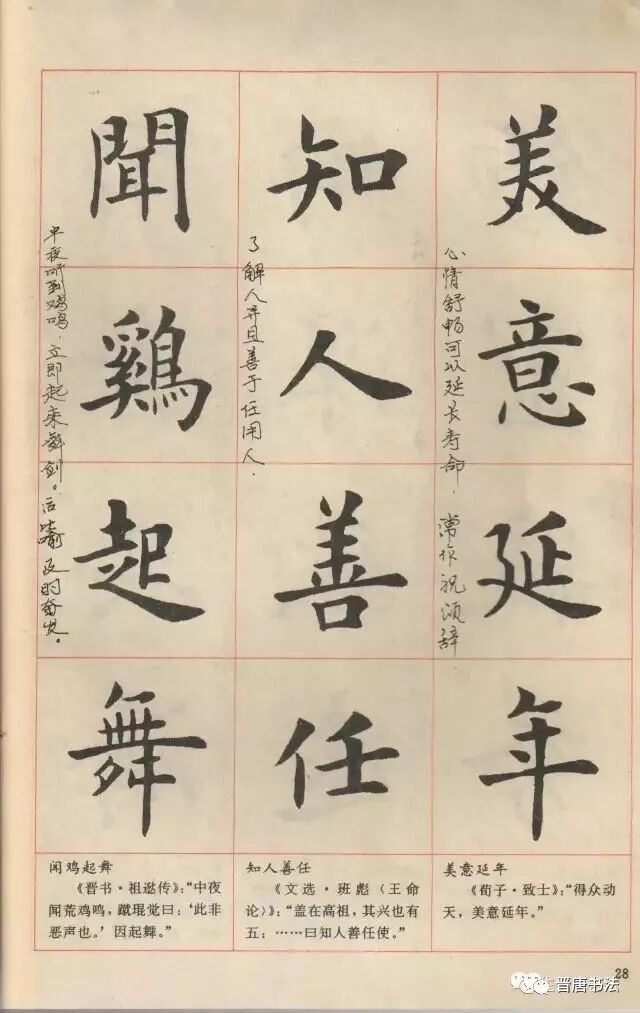 美意延年
心情舒畅可以延长寿命. 常作祝颂辞
知人善任
了解人并且善于任用人.
聞鷄起舞
半夜听到鸡鸣.立即起来舞剑。后比喻及时奋发。
美意延年
《荀子·致士》：“得众动
天，美意延年。”
知人善任
《文选·班彪（王命
论）》：“盖在高祖，其兴也有
五：……曰知人善任使。”
闻鸡起舞
《晋书·祖逖传》：“中夜
闻荒鸡鸣，蹴琨觉曰：‘此非
恶声也。’因起舞。”
28
晋唐书法